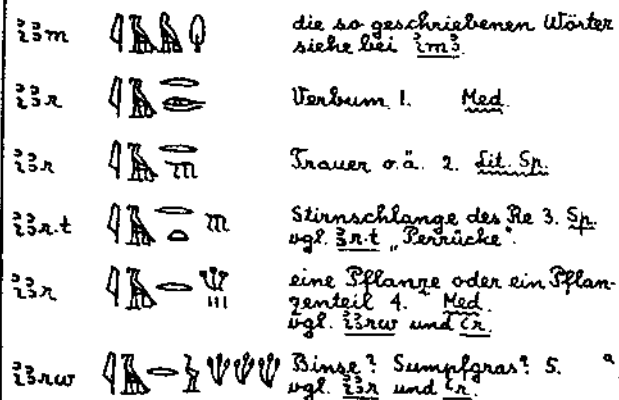 i͗ꜣm die so geschriebenen Wörter
siehe bei i͗mꜣ.
i͗ꜣr Verbum 1. Med.
i͗ꜣr Trauer o.ä. 2. Lit. Sp.
i͗ꜣr.t Stirnschlange des Re 3. Sp.
vgl. ꜣr.t „Perrücke“.
i͗ꜣr eine Pflanze oder ein Pflan-
zenteil 4. Med.
vgl. i͗ꜣrw und i͗r.
i͗ꜣrw Binse? Sumpfgras? 5. a
vgl. i͗ꜣr und i͗r.